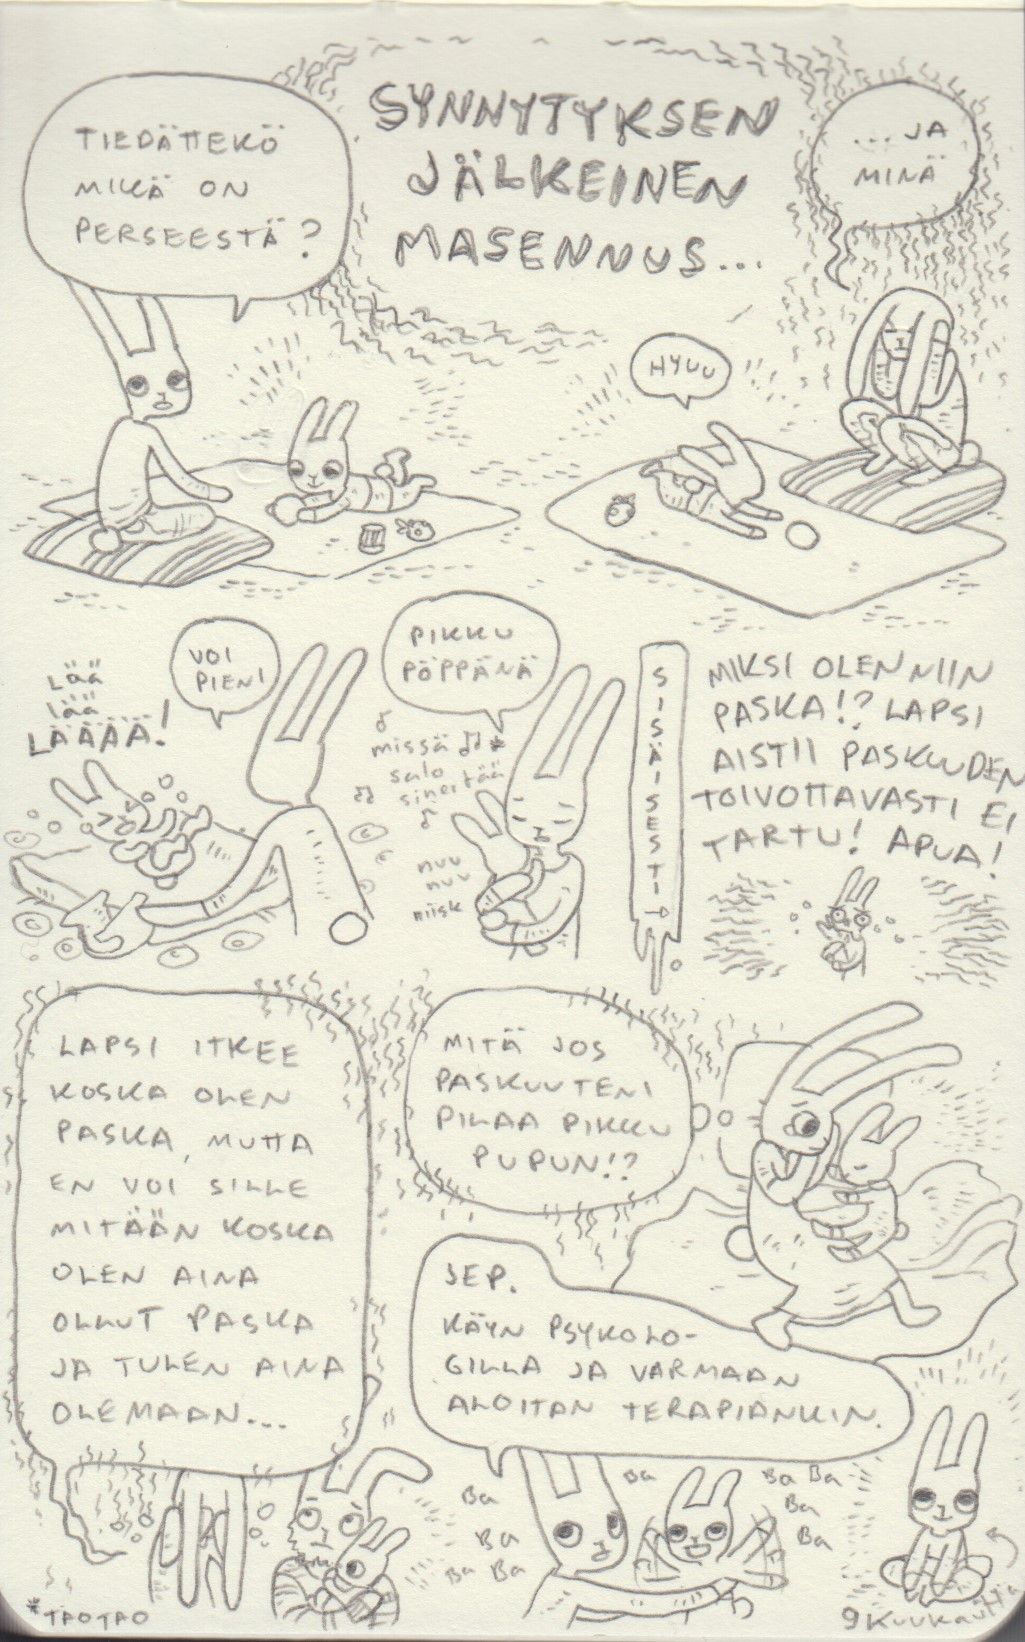 TIEDÄTTEKÖ
MIKÄ ON
PERSEESTÄ?
SYNNYTYKSEN
JÄLKEINEN
MASENNUS...
...JA
MINÄ
HYUU
Lää
lää
LÄÄÄÄ!
VOI
PIENI
PIKKU
PÖPPÄNÄ
missä
salo
sinertää
*
nuu
nuu
niisk
SISÄISESTI
MIKSI OLEN NIIN
PASKA!? LAPSI
AISTII PASKUUDEN
TOIVOTTAVASTI EI
TARTU! APUA!
LAPSI ITKEE
KOSKA OLEN
PASKA, MUTTA
EN VOI SILLE
MITÄÄN KOSKA
OLEN AINA
OLLUT PASKA
JA TULEN AINA
OLEMAAN...
MITÄ JOS
PASKUUTENI
PILAA PIKKU
PUPUN!?
JEP.
KÄYN PSYKOLO-
GILLA JA VARMAAN
ALOITAN TERAPIANKIN.
Ba
Ba
Ba Ba
Ba
Ba Ba
Ba
Ba
*TAOTAO
9 KUUKAUTTA